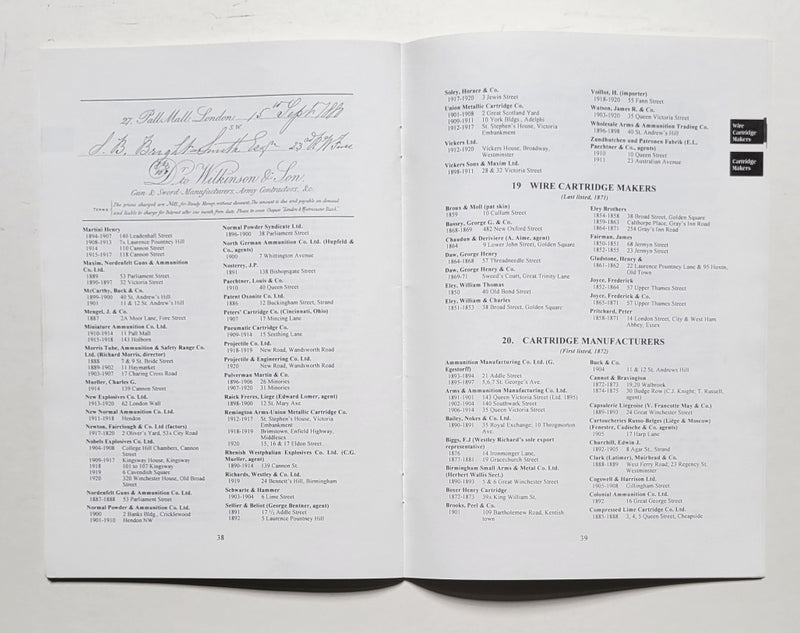 27, Pall Mall, London, 15th Sept 1880
S.W.
J. B. Bright-Smith Esq
Dr to Wilkinson & Son.
Gun & Sword Manufacturers, Army Contractors, &c.
TERMS
Martini Henry
1894-1907 141 Leadenhall Street
1908-1913 7a Laurence Pountney Hill
1914 110 Cannon Street
1915-1917 118 Cannon Street
Maxim, Nordenfelt Guns & Ammunition
Co. Ltd.
1889 53 Parliament Street
1890-1897 32 Victoria Street
McCarthy, Buck & Co.
1899-1900 40 St. Andrew's Hill
1901 11 & 12 St. Andrew's Hill
Mengel, J. & Co.
1887 2A Moor Lane, Fore Street
Miniature Ammunition Co. Ltd.
1910-1914 11 Pall Mall
1915-1918 143 Holborn
Morris Tube, Ammunition & Safety Range Co.
Ltd. (Richard Morris, director)
1888 7 & 9 St. Bride Street
1889-1902 11 Haymarket
1903-1907 17 Charing Cross Road
Mueller, Charles G.
1914 139 Cannon Street
New Explosives Co. Ltd.
1913-1920 62 London Wall
New Normal Ammunition Co. Ltd.
1911-1918 Hendon
Newton, Fairclough & Co. Ltd (factors)
1917-1920 2 Oliver's Yard, 53a City Road
Nobels Explosives Co. Ltd.
1904-1908 College Hill Chambers, Cannon
Street
1909-1917 Kingsway House, Kingsway
1918 101 to 107 Kingsway
1919 6 Cavendish Square
1920 320 Winchester House, Old Broad
Street
Nordenfelt Guns & Ammunition Co. Ltd.
1887-1888 53 Parliament Street
Normal Powder & Ammunition Co. Ltd.
1900 2 Banks Bldg., Cricklewood
1901-1910 Hendon NW
Normal Powder Syndicate Ltd.
1896-1900 38 Parliament Street
North German Ammunition Co. Ltd. (Hupfeld &
Co., agents)
1900 7 Whittington Avenue
Nosterey, J.P.
1891 138 Bishopsgate Street
Paechtner, Louis & Co.
1910 40 Queen Street
Patent Oxonite Co. Ltd.
1886 12 Buckingham Street, Strand
Peters' Cartridge Co. (Cincinnati, Ohio)
1907 17 Mincing Lane
Pneumatic Cartridge Co.
1909-1914 15 Seething Lane
Projectile Co. Ltd.
1918-1919 New Road, Wandsworth Road
Projectile & Engineering Co. Ltd.
1920 New Road, Wandsworth Road
Pulverman Martin & Co.
1896-1906 26 Minories
1907-1920 31 Minories
Raick Freres, Liege (Edward Lomer, agent)
1898-1900 12 St. Mary Axe
Remington Arms-Union Metallic Cartridge Co.
1912-1917 St. Stephen's House, Victoria
Embankment
1918-1919 Brimstown, Enfield Highway,
Middlesex
1920 15, 16 & 17 Eldon Street
Rhenish Westphalian Explosives Co. Ltd. (C.G.
Mueller, agent)
1890-1914 139 Cannon St.
Richards, Westley & Co. Ltd.
1919 24 Bennett's Hill, Birmingham
Schwarte & Hammer
1903-1904 6 Lime Street
Sellier & Bellot (George Bentner, agent)
1891 17 ½ Addle Street
1892 5 Laurence Pountney Hill
38
Soley, Hornez & Co.
1917-1920 3 Jewin Street
Union Metallic Cartridge Co.
1901-1908 2 Great Scotland Yard
1909-1911 10 York Bldgs., Adelphi
1912-1917 St. Stephen's House, Victoria
Embankment
Vickers Ltd.
1912-1920 Vickers House, Broadway,
Westminster
Vickers Sons & Maxim Ltd.
1898-1911 28 & 32 Victoria Street
Voillot, H. (importer)
1918-1920 55 Fann Street
Watson, James R. & Co.
1903-1920 35 Queen Victoria Street
Wholesale Arms & Ammunition Trading Co.
1896-1898 40 St. Andrew's Hill
Zundhutchen und Patronen Fabrik (E.L.
Paechtner & Co., agents)
1910 10 Queen Street
1911 23 Australian Avenue
Wire
Cartridge
Makers
Cartridge
Makers
19 WIRE CARTRIDGE MAKERS
(Last listed, 1871)
Broux & Moll (pat skin)
1859 10 Cullum Street
Bussey, George G. & Co.
1868-1869 482 New Oxford Street
Chaudun & Deriviere (A. Aime, agent)
1864 9 Lower John Street, Golden Square
Daw, George Henry
1864-1868 57 Threadneedle Street
Daw, George Henry & Co.
1869-71 Sweed's Court, Great Trinity Lane
Eley, William Thomas
1850 40 Old Bond Street
Eley, William & Charles
1851-1853 38 Broad Street, Golden Square
Eley Brothers
1854-1858 38 Broad Street, Golden Square
1859-1863 Calthorpe Place, Gray's Inn Road
1864-1871 254 Gray's Inn Road
Fairman, James
1850-1851 68 Jermyn Street
1852-1855 23 Jermyn Street
Gladstone, Henry &
1861-1862 22 Laurence Pountney Lane & 95 Hoxton,
Old Town
Joyce, Frederick
1852-1864 57 Upper Thames Street
Joyce, Frederick & Co.
1865-1871 57 Upper Thames Street
Pritchard, Peter
1858-1871 14 London Street, City & West Ham
Abbey, Essex
20. CARTRIDGE MANUFACTURERS
(First listed, 1872)
Ammunition Manufacturing Co. Ltd. (G.
Egestorff)
1893-1894 21 Addle Street
1895-1897 5,6,7 St. George's Ave.
Arms & Ammunition Manufacturing Co. Ltd.
1891-1901 143 Queen Victoria Street (Ltd. 1895)
1902-1904 140 Southwark Street
1906-1914 35 Queen Victoria Street
Bailey, Nokes & Co. Ltd.
1890-1891 35 Royal Exchange; 10 Throgmorton
Ave.
Biggs, F.J (Westley Richard's sole export
representative)
1876 14 Ironmonger Lane,
1877-1881 19 Gracechurch Street
Birmingham Small Arms & Metal Co. Ltd.
(Herbert Wallis Sect.)
1890-1893 5 & 6 Great Winchester Street
Boxer Henry Cartridge
1872-1873 39a King William St.
Brooks, Peel & Co.
1901 109 Bartholomew Road, Kentish
town
Buck & Co.
1904 11 & 12 St. Andrews Hill
Cannot & Bravington
1872-1873 19,20 Walbrook
1874-1875 30 Budge Row (C.J. Knight; T. Russell,
agent)
Capsulerie Liegeoise (V. Francotte May & Co.)
1889-1893 24 Great Winchester Street
Cartoucheries Russo-Belges (Liège & Moscow)
(Fenester, Cudische & Co. agents)
1905 17 Harp Lane
Churchill, Edwin J.
1892-1905 8 Agar St., Strand
Clark (Latimer), Muirhead & Co.
1888-1889 West Ferry Road; 23 Regency St.
Westminster
Cogswell & Harrison Ltd.
1905-1908 Gillingham Street
Colonial Ammunition Co. Ltd.
1892 16 Great George Street
Compressed Lime Cartridge Co. Ltd.
1885-1888 3, 4, 5 Queen Street, Cheapside
39